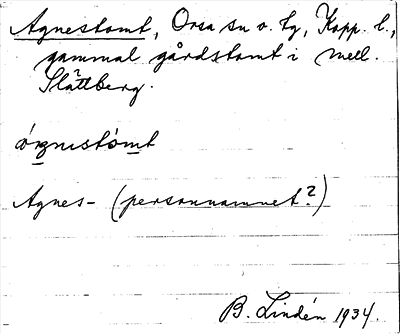 Agnestomt, Orsa sn o. tg, Kopp. l.,
gammal gårdstomt i mell.
Slättberg.
órgnustòmt
Agnes- (personnamnet?)
B. Lindén 1934.